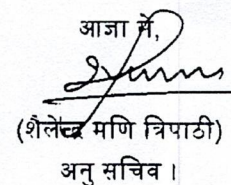 आज्ञा से,
(शैलेन्द्र मणि त्रिपाठी)
अनु सचिव ।